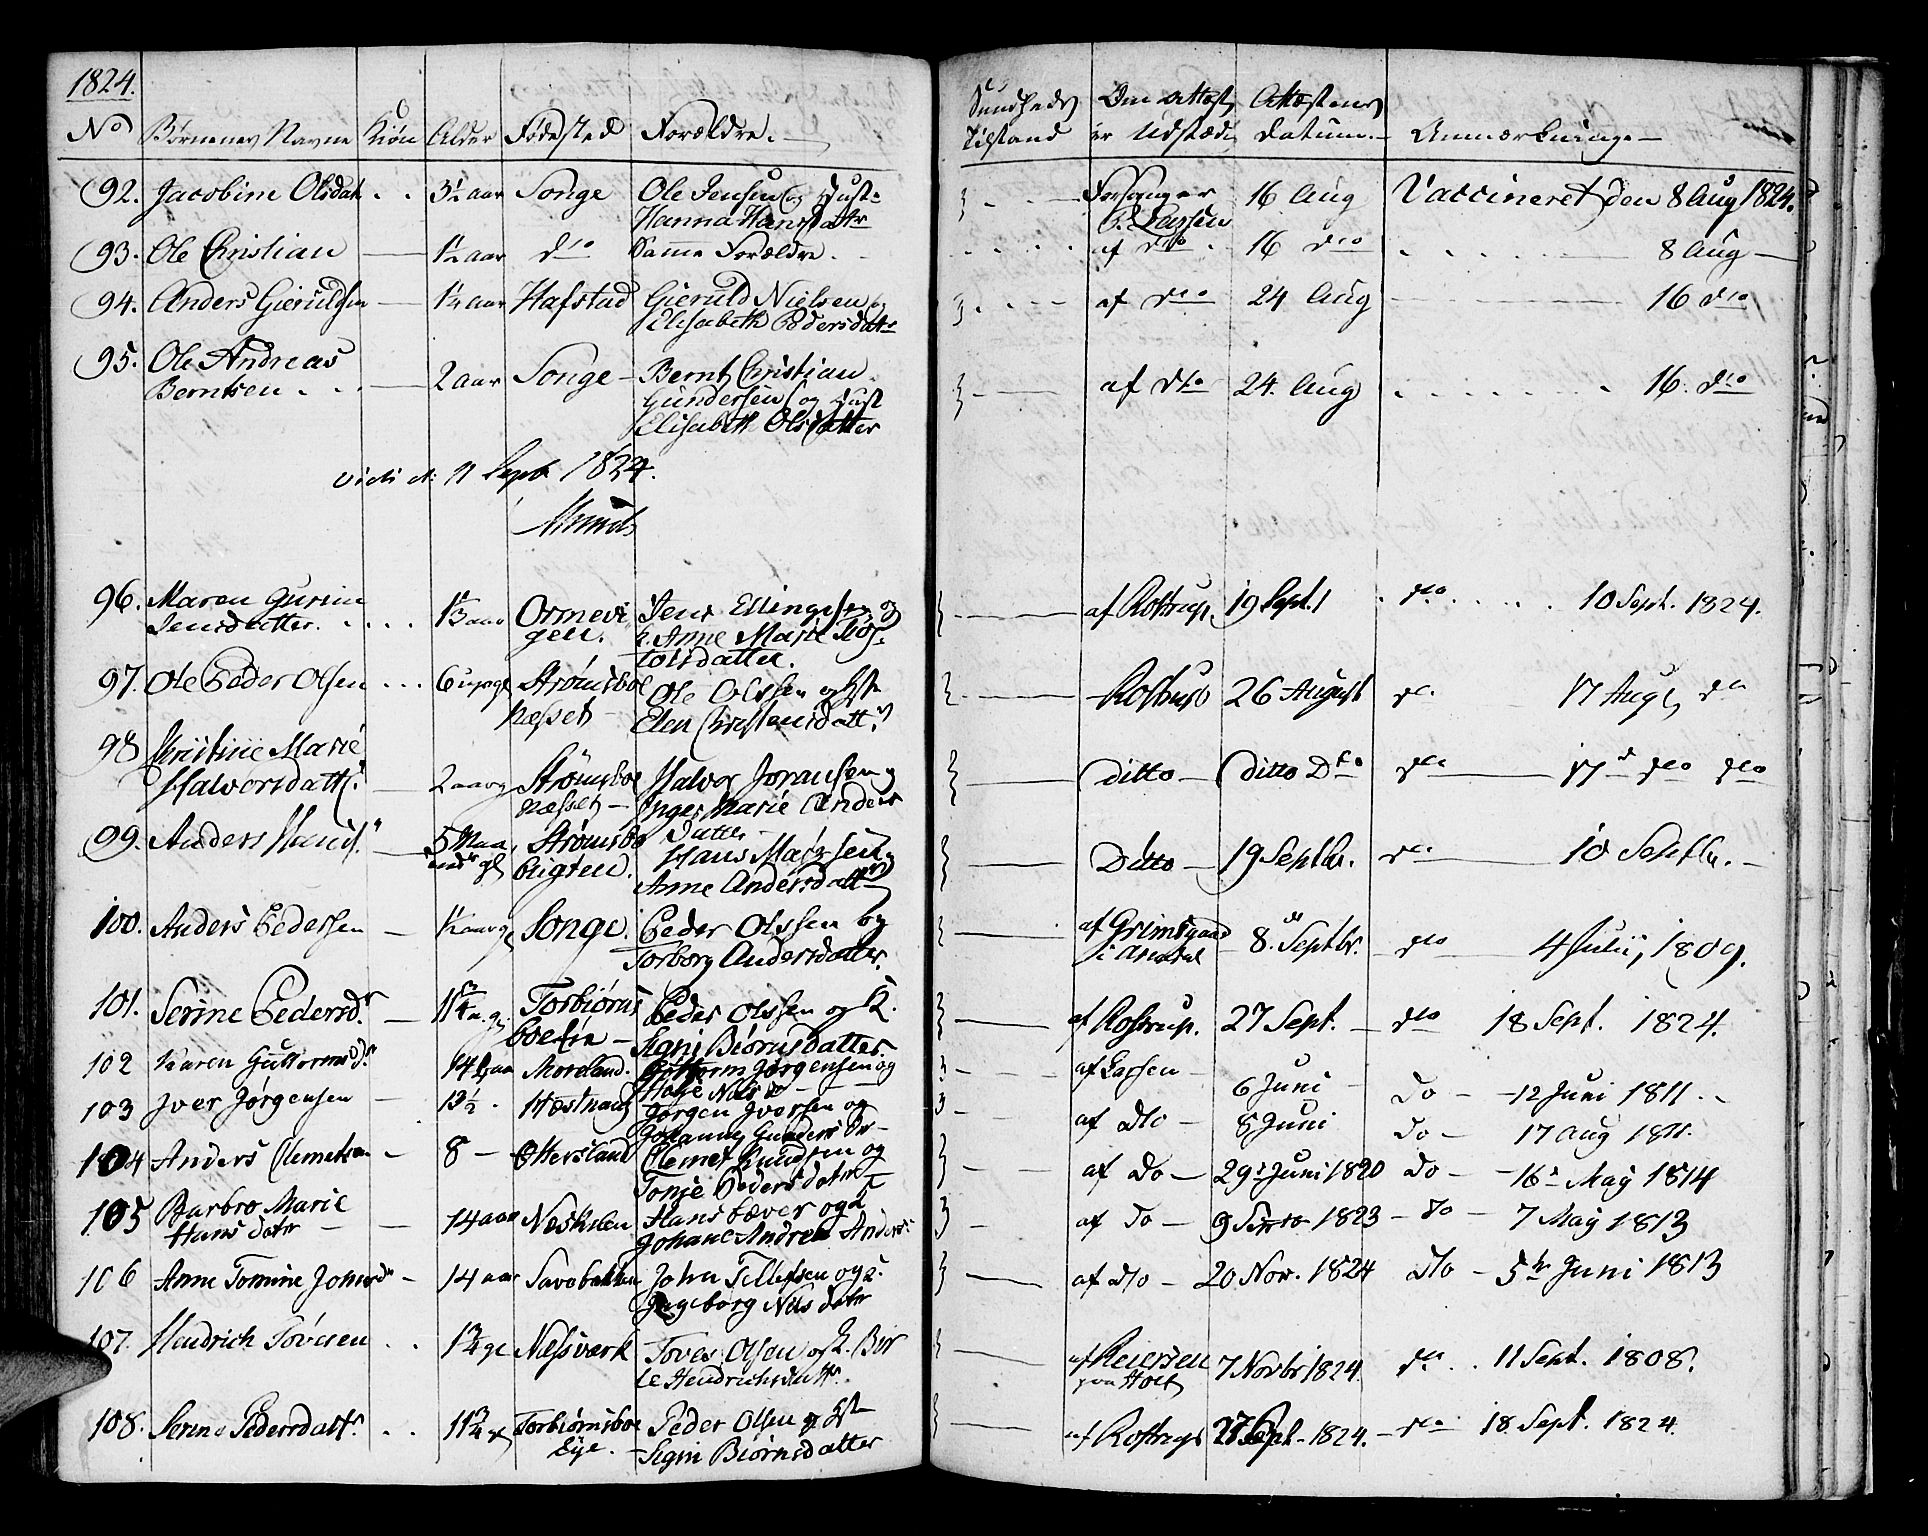 1824.
No Børnenes Navne Kiøn Alder Fødested Forældre.
Sundheds Tilstand Om Attest er Udstædt Attestens Datum. Anmærkninger
92. Jacobine Olsdatr 3½ aar Songe Ole Jensen og Hust:
Hanna Hansdatr
Forsanger O. Larssen 16 Aug Vaccineret den 8 Aug 1824.
93. Ole Christian 1½ aar dto Samme Forældre.
af dto 16 dto 8 Aug
94. Anders Gieruldsen 1¼ aar Hafstad Gieruld Nielsen og
Elisabeth Pedersdatr
af dto 24 Aug 16 dto
95. Ole Andreas
Berntsen 2 aar Songe Bernt Christian
Gundersen og Hust
Elisabeth Olsdatter
af dto 24. Aug 16. dto
vidi d: 11 Sept 1824.
96. Maren Gurine
Jensdatter. aar Ormevi
gen. Jens Ellingsen og
k. Anne Marie Tor-
torsdatter.
af Rostrup. 19 Sept. dto 10 Sept. 1824.
97. Ole Peder Olsen 6 uger gl Strømsboe
Næsset Ole Olssen og Hst
Elen Christensdatt.
Rostrup 26 August do 17 Aug. do
98 Christine Marie
Halvorsdattr. 2 aar g Strømsboe
Næsset Halvor Joransen og
Inger Marie Anders
Datter
Ditto Ditto Dto do 17 dto dto
99. Anders Hans. 5 Maa
neder gl Strømsbo
bugten. Hans
Anne Andersdatter
Ditto 19 Septbr. do 10 Septbr.
100. Anders Pedersen aar gl Songe. Peder Olssen og
Torborg Andersdatter.
af Grimsgaard
i Arendal 8. Septbr. dto 4 Julii, 1809.
101. Serine Pedersd. Torbiørns
boe Peder Olssen og K.
Signi Biørnsdatter.
af Rostrup. 27 Sept. dto 18 Sept. 1824.
102 Karen Guttormsd. 14½ aar Moreland. Guttorm Jørgensen og
Nilsd
af Larsen 6 Juni Do 12 Juni 1811
103 Iver Jørgensen 13½ Hæstnæs Jørgen Iversen og
Johanna Gunders Dr
af Dto 8 Juni Do 17 Aug 1811.
104 Anders Clemetsen 8 Ottersland Clemet Knudsen og
Tonje Pedersdatter
af Do 29 Juni 1820 Do 16 May 1814
105 Barbro Marie
Hans datr 14 aar Neskilen Hans bæver og K
Johane Andrea Anders
af Do 9 1823 Do 7 May 1813
106 Anne Tomine Johnsdr 14 aar Savebakken John Tellefsen og K.
Ingeborg Nils datr
af Dto 20 Nov. 1824 Dto 5te Juni 1813
107. Hendrich Tovesen gl Nessværk Toves Olsen og K. Bor
te Hendrichsdattr.
af Reiersen
paa Holt 7 Novbr 1824. do 11 Sept. 1808.
108. Serine Pedersdattr 11¾ gl Torbiørnsboe
Eye. Peder Olsen og Hst
Signi Biørnsdatter
af Rostrup 27 Sept 1824. do 18 Sept. 1824.